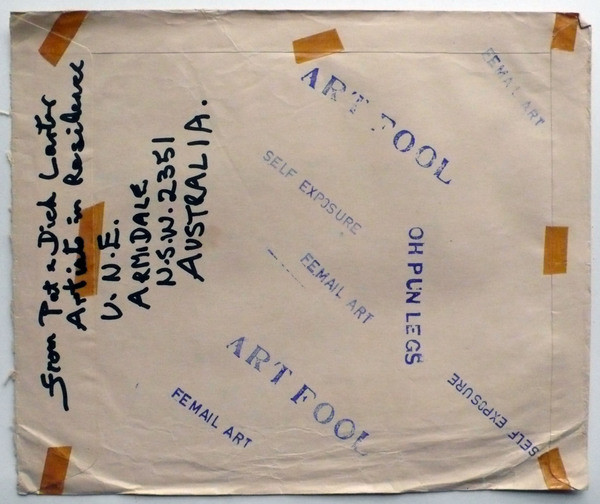 From Pat & Dick Larter
Artists in Residence
U.N.E.
ARMIDALE
N.S.W. 2351
AUSTRALIA.
FEMAIL ART
ART FOOL
SELF EXPOSURE
OH PUN LEGS
FEMAIL ART
ART FOOL
SELF EXPOSURE
FEMAIL ART